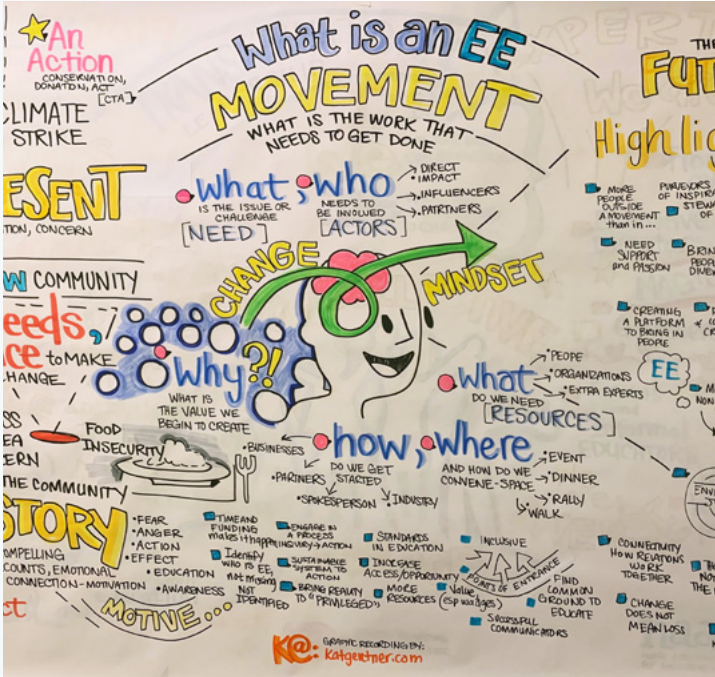 An
Action
CONSERVATION,
DONATION, ACT
[CTA]
CLIMATE
STRIKE
ESENT
TION, CONCERN
W COMMUNITY
eeds,
ce to MAKE
HANGE
SS
EA
ERN
FOOD
INSECURITY
THE COMMUNITY
STORY
OMPELLING
COUNTS, EMOTIONAL
CONNECTION-MOTIVATION
• FEAR
• ANGER
• ACTION
• EFFECT
• EDUCATION
• AWARENESS
MOTIVE...
What is an EE
MOVEMENT
WHAT IS THE WORK THAT
NEEDS TO GET DONE
what,
IS THE ISSUE OR
CHALLENGE
[NEED]
who
NEEDS TO
BE INVOLVED
[ACTORS]
DIRECT
• IMPACT
• INFLUENCERS
• PATRTNERS
CHANGE
MINDSET
Why?!
WHAT IS
THE VALUE WE
BEGIN TO CREATE
what
DO WE NEED
[RESOURCES]
• PEOPE
• ORGANIZATIONS
• EXTRA EXPERTS
how,
DO WE GET
STARTED
• BUSINESSES
PARTNERS
• SPOKESPERSON
• INDUSTRY
where
AND HOW DO WE
CONVENE-SPACE
• EVENT
• DINNER
• RALLY
WALK
TIME AND
FUNDING
makes it happen
Identify
who is EE,
not missing
NOT
IDENTIFIED
ENGAGE IN
A PROCESS
INQUIRY → ACTION
SUSTAINABLE
SYSTEM TO
ACTION
BRING REALITY
TO "PRIVILEGED"
STANDARDS
IN EDUCATION
INCREASE
ACCESS/OPPORTUNITY
MORE
RESOURCES
Value
(esp wadges)
INCLUSIVE
POINTS OF ENTRANCE
FIND
COMMON
GROUND TO
EDUCATE
SUCCESSFULL
COMMUNICATORS
CONNECTIVITY
HOW RELATIONS
WORK
TOGETHER
CHANGE
DOES NOT
MEAN LOSS
THE
FUT
High lig
MORE
PEOPLE
OUTSIDE
A MOVEMENT
than in...
PURVEYORS
OF INSPIR
STEW
OF
NEED
SUPPORT
and PASSION
BRIN
PEOPL
DIVE
CREATING
A PLATFORM
TO BRING IN
PEOPLE
EE
NON
ENV
K@:
GRAPHIC RECORDING BY:
katgentner.com